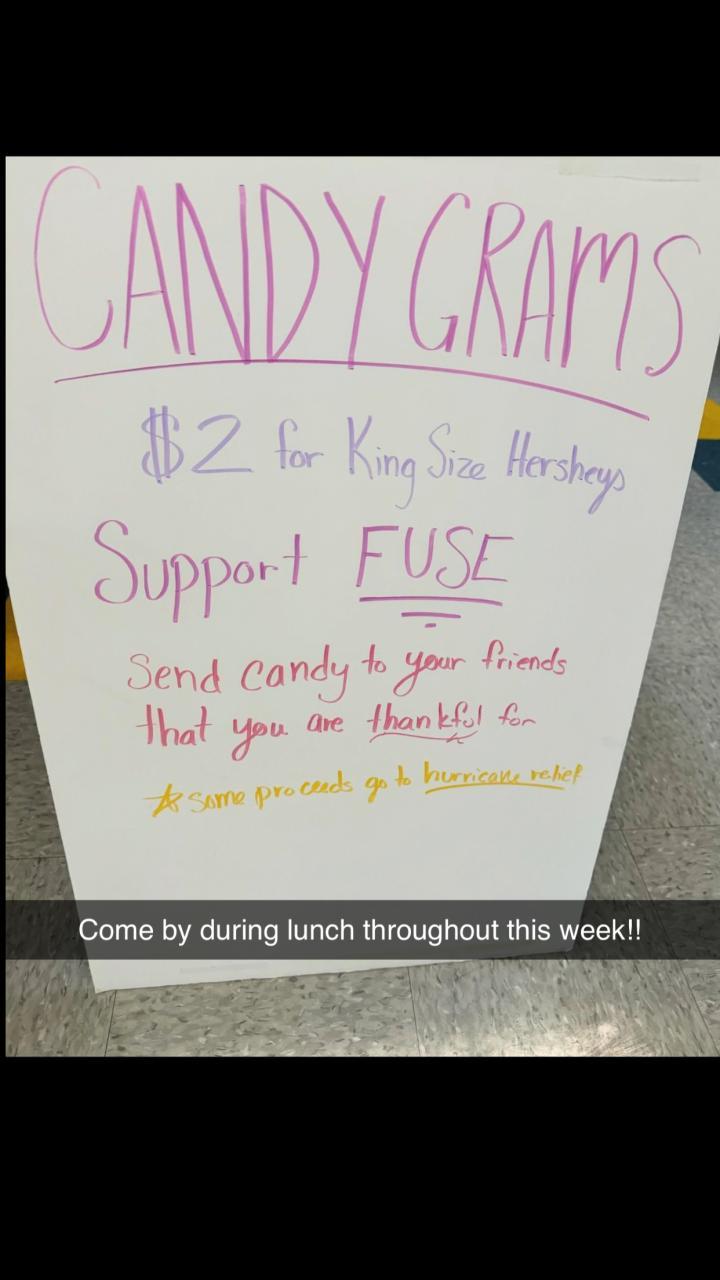 CANDY GRAMS
$2 for King Size Hersheys
Support FUSE
Send candy to your friends
that you are thankful for
☆ some proceeds go to hurricane relief
Come by during lunch throughout this week!!